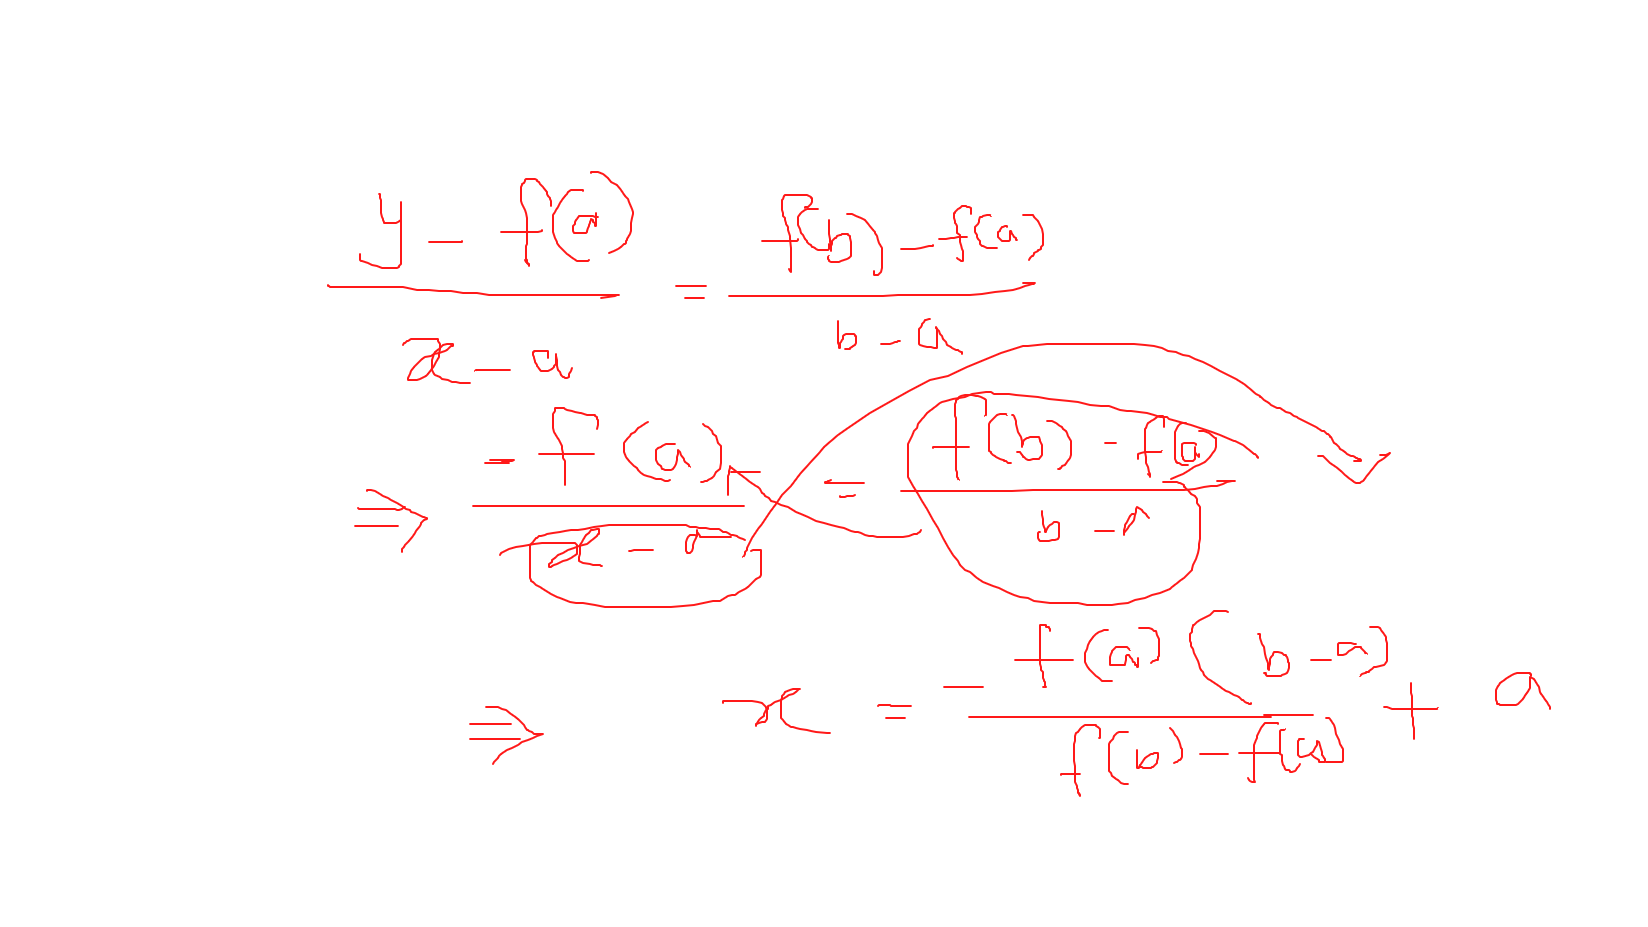 y - f(a) / x - a = f(b) - f(a) / b - a
⇒ - f(a) / x - a = f(b) - f(a) / b - a
⇒ x = - f(a) (b - a) / f(b) - f(a) + a